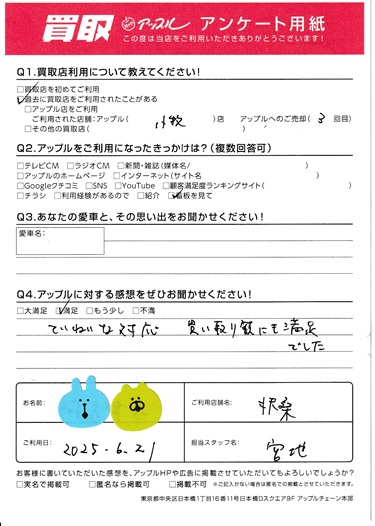 買取 アップル アンケート用紙
この度は当店をご利用いただきありがとうございます!
Q1.買取店利用について教えてください!
□買取店を初めてご利用
☑過去に買取店をご利用されたことがある
□アップル店をご利用
ご利用された店舗:アップル( 小牧 )店 アップルへのご売却( 3 回目)
□その他の買取店( )
Q2.アップルをご利用になったきっかけは?(複数回答可)
□テレビCM □ラジオCM □新聞・雑誌(媒体名/ )
□アップルのホームページ □インターネット(サイト名 )
□Googleクチコミ □SNS □YouTube □顧客満足度ランキングサイト( )
□チラシ □利用経験があるので □紹介 ☑看板を見て
Q3.あなたの愛車と、その思い出をお聞かせください!
愛車名:
Q4.アップルに対する感想をぜひお聞かせください!
□大満足 ☑満足 □もう少し □不満
ていねいな対応 買い取り額にも満足
でした
お名前:
ご利用店舗名:
ご利用日: 2025-6-21
担当スタッフ名: 宮地
お客様に書いていただいた感想を、アップルHPや広告に掲載させていただいてもよろしいでしょうか?
□実名で掲載可 □匿名なら掲載可 □掲載不可 ※ご記入がない場合は匿名での掲載とさせていただきます。
東京都中央区日本橋1丁目16番11号日本橋Dスクエア9F アップルチェーン本部